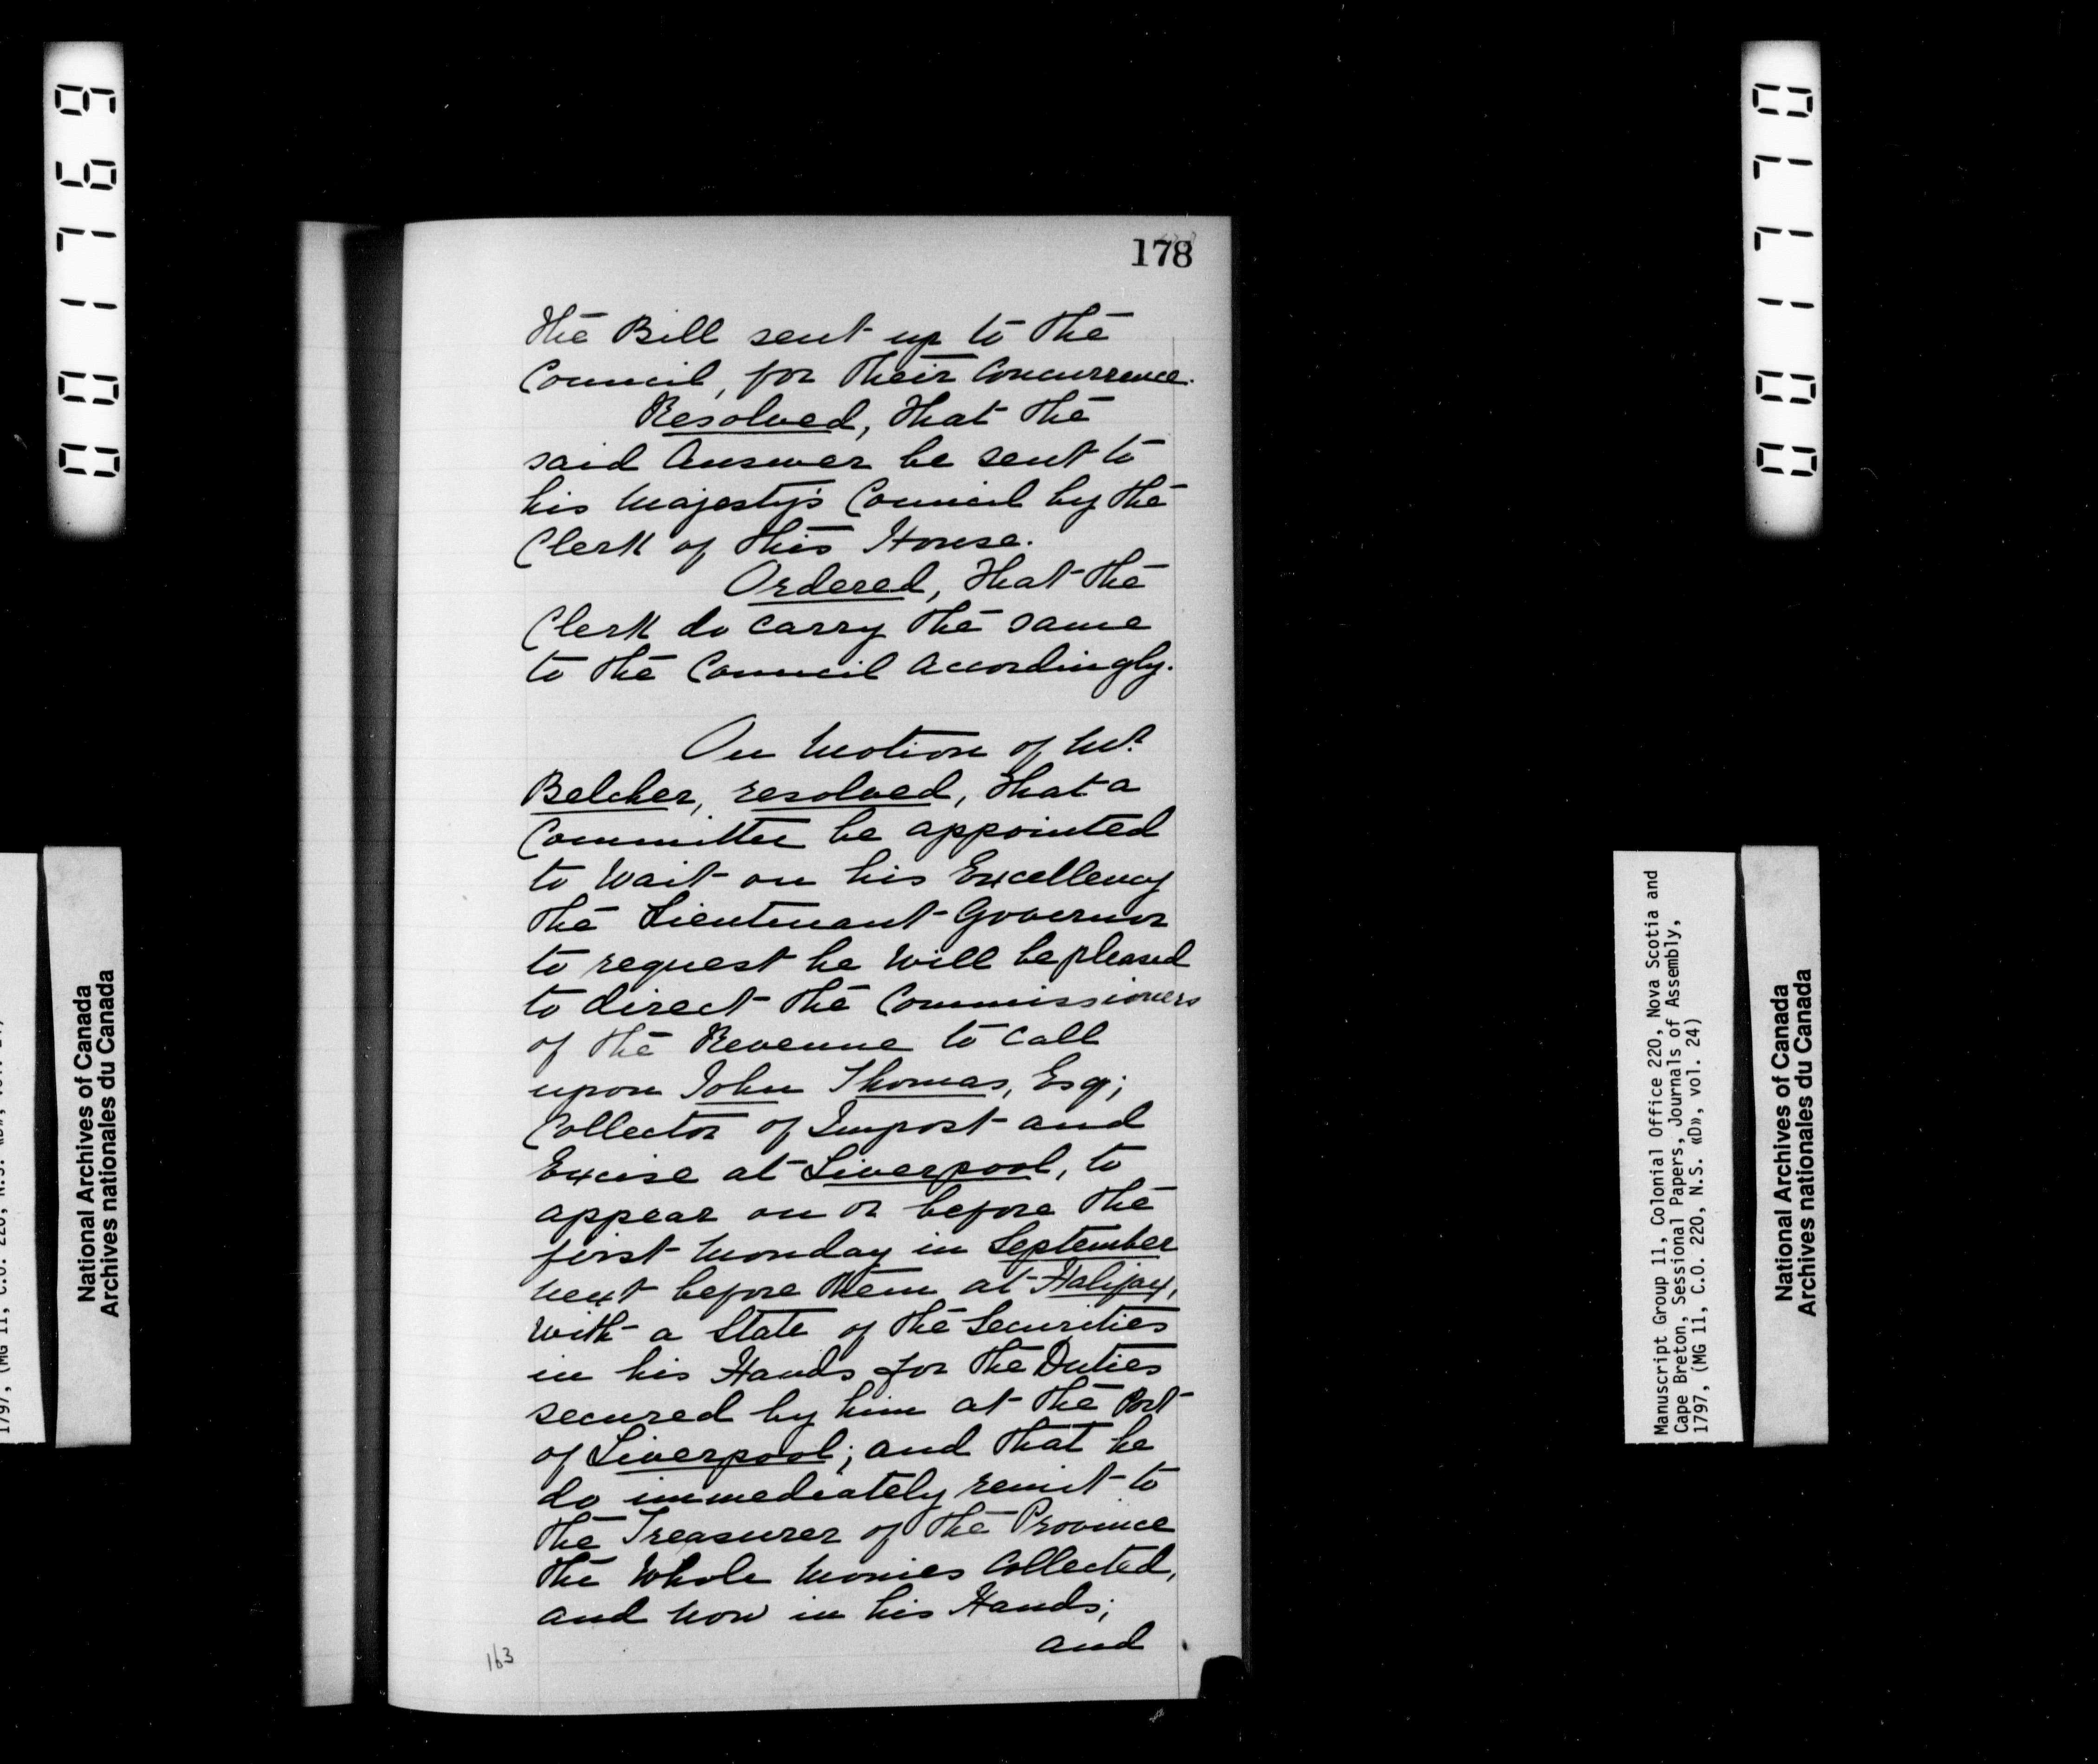 001769
001770
178
the Bill sent up to the
Council, for their Concurrence.
Resolved, that the
said Answer be sent to
his Majesty's Council by the
Clerk of this House.
Ordered, that the
Clerk do carry the same
to the Council Accordingly.
On Motion of Mr.
Belcher, resolved, that a
Committee be appointed
to Wait on his Excellency
the Lieutenant Governor
to request he Will be pleased
to direct the Commissioners
of the Revenue to Call
upon John Thomas, Esq;
Collector of Impost and
Excise at Liverpool, to
appear on or before the
first Monday in September
next before them at Halifax,
With a State of the Securities
in his Hands for the Duties
secured by him at the Port
of Liverpool; and that he
do immediately remit to
the Treasurer of the Province
the Whole Monies Collected,
and Now in his Hands;
and
163
National Archives of Canada
Archives nationales du Canada
Manuscript Group 11, Colonial Office 220, Nova Scotia and
Cape Breton, Sessional Papers, Journals of Assembly,
1797, (MG 11, C.O. 220, N.S. «D», vol. 24)
National Archives of Canada
Archives nationales du Canada